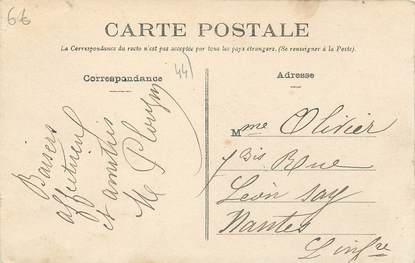 66
CARTE POSTALE
La Correspondance du recto n'est pas acceptée par tous les pays étrangers. (Se renseigner à la Poste).
Correspondance
44)
Baisers
affectueux
et amitiés
M
Adresse
Mme Olivier
7 bis Rue
Léon Say
Nantes
L. Infre